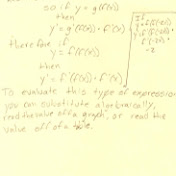 so if y = g(f(x))
then
y' = g'(f(x)) · f'(x)
therefore if
y = f(f(x))
then
y' = f'(f(x)) · f'(x)
If
To evaluate this type of expression
you can substitute algebraically,
read the value off a graph, or read the
value off of a table.